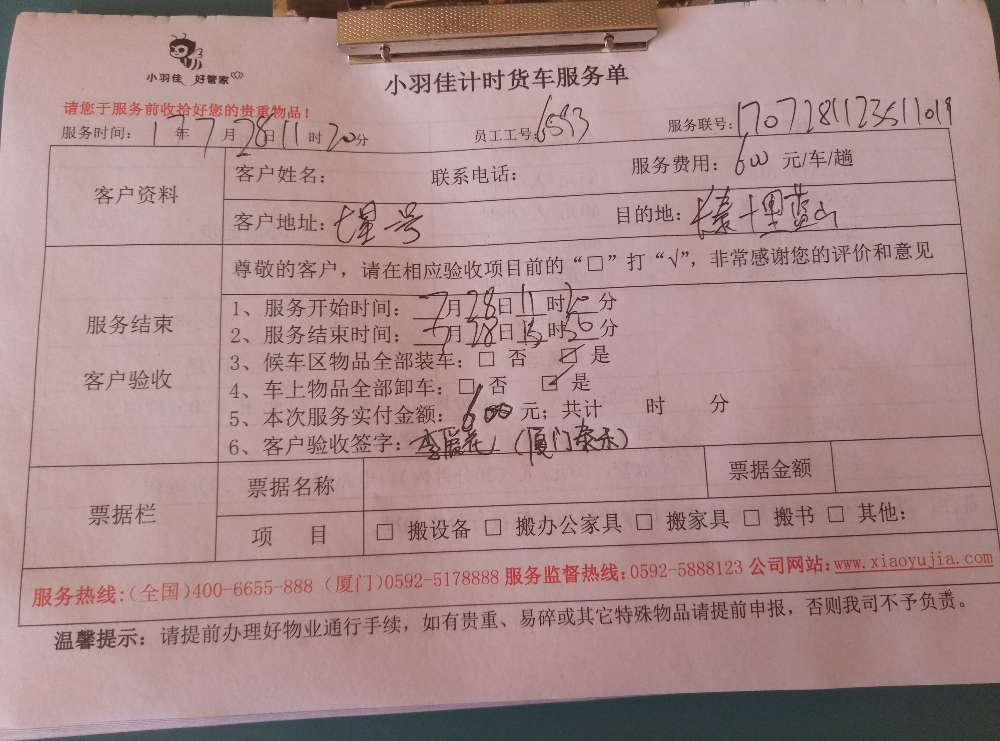 小羽佳 好管家
小羽佳计时货车服务单
请您于服务前收拾好您的贵重物品！
服务时间： 17年 7月 28日 11时 20分 员工工号：6593 服务联号：1707281123511019
客户资料
客户姓名： 联系电话： 服务费用：600 元/车/趟
客户地址：七星 号 目的地： 十里蓝山
服务结束
客户验收
尊敬的客户，请在相应验收项目前的“□”打“√”，非常感谢您的评价和意见
1、服务开始时间：7月28日11时20分
2、服务结束时间：7月28日13时56分
3、候车区物品全部装车：□ 否 ☑ 是
4、车上物品全部卸车：□ 否 ☑ 是
5、本次服务实付金额：600元；共计 时 分
6、客户验收签字：李 花（厦门 禾）
票据栏
票据名称 票据金额
项 目 □ 搬设备 □ 搬办公家具 □ 搬家具 □ 搬书 □ 其他：
服务热线：（全国）400-6655-888（厦门）0592-5178888 服务监督热线：0592-5888123 公司网站：www.xiaoyujia.com
温馨提示：请提前办理好物业通行手续，如有贵重、易碎或其它特殊物品请提前申报，否则我司不予负责。